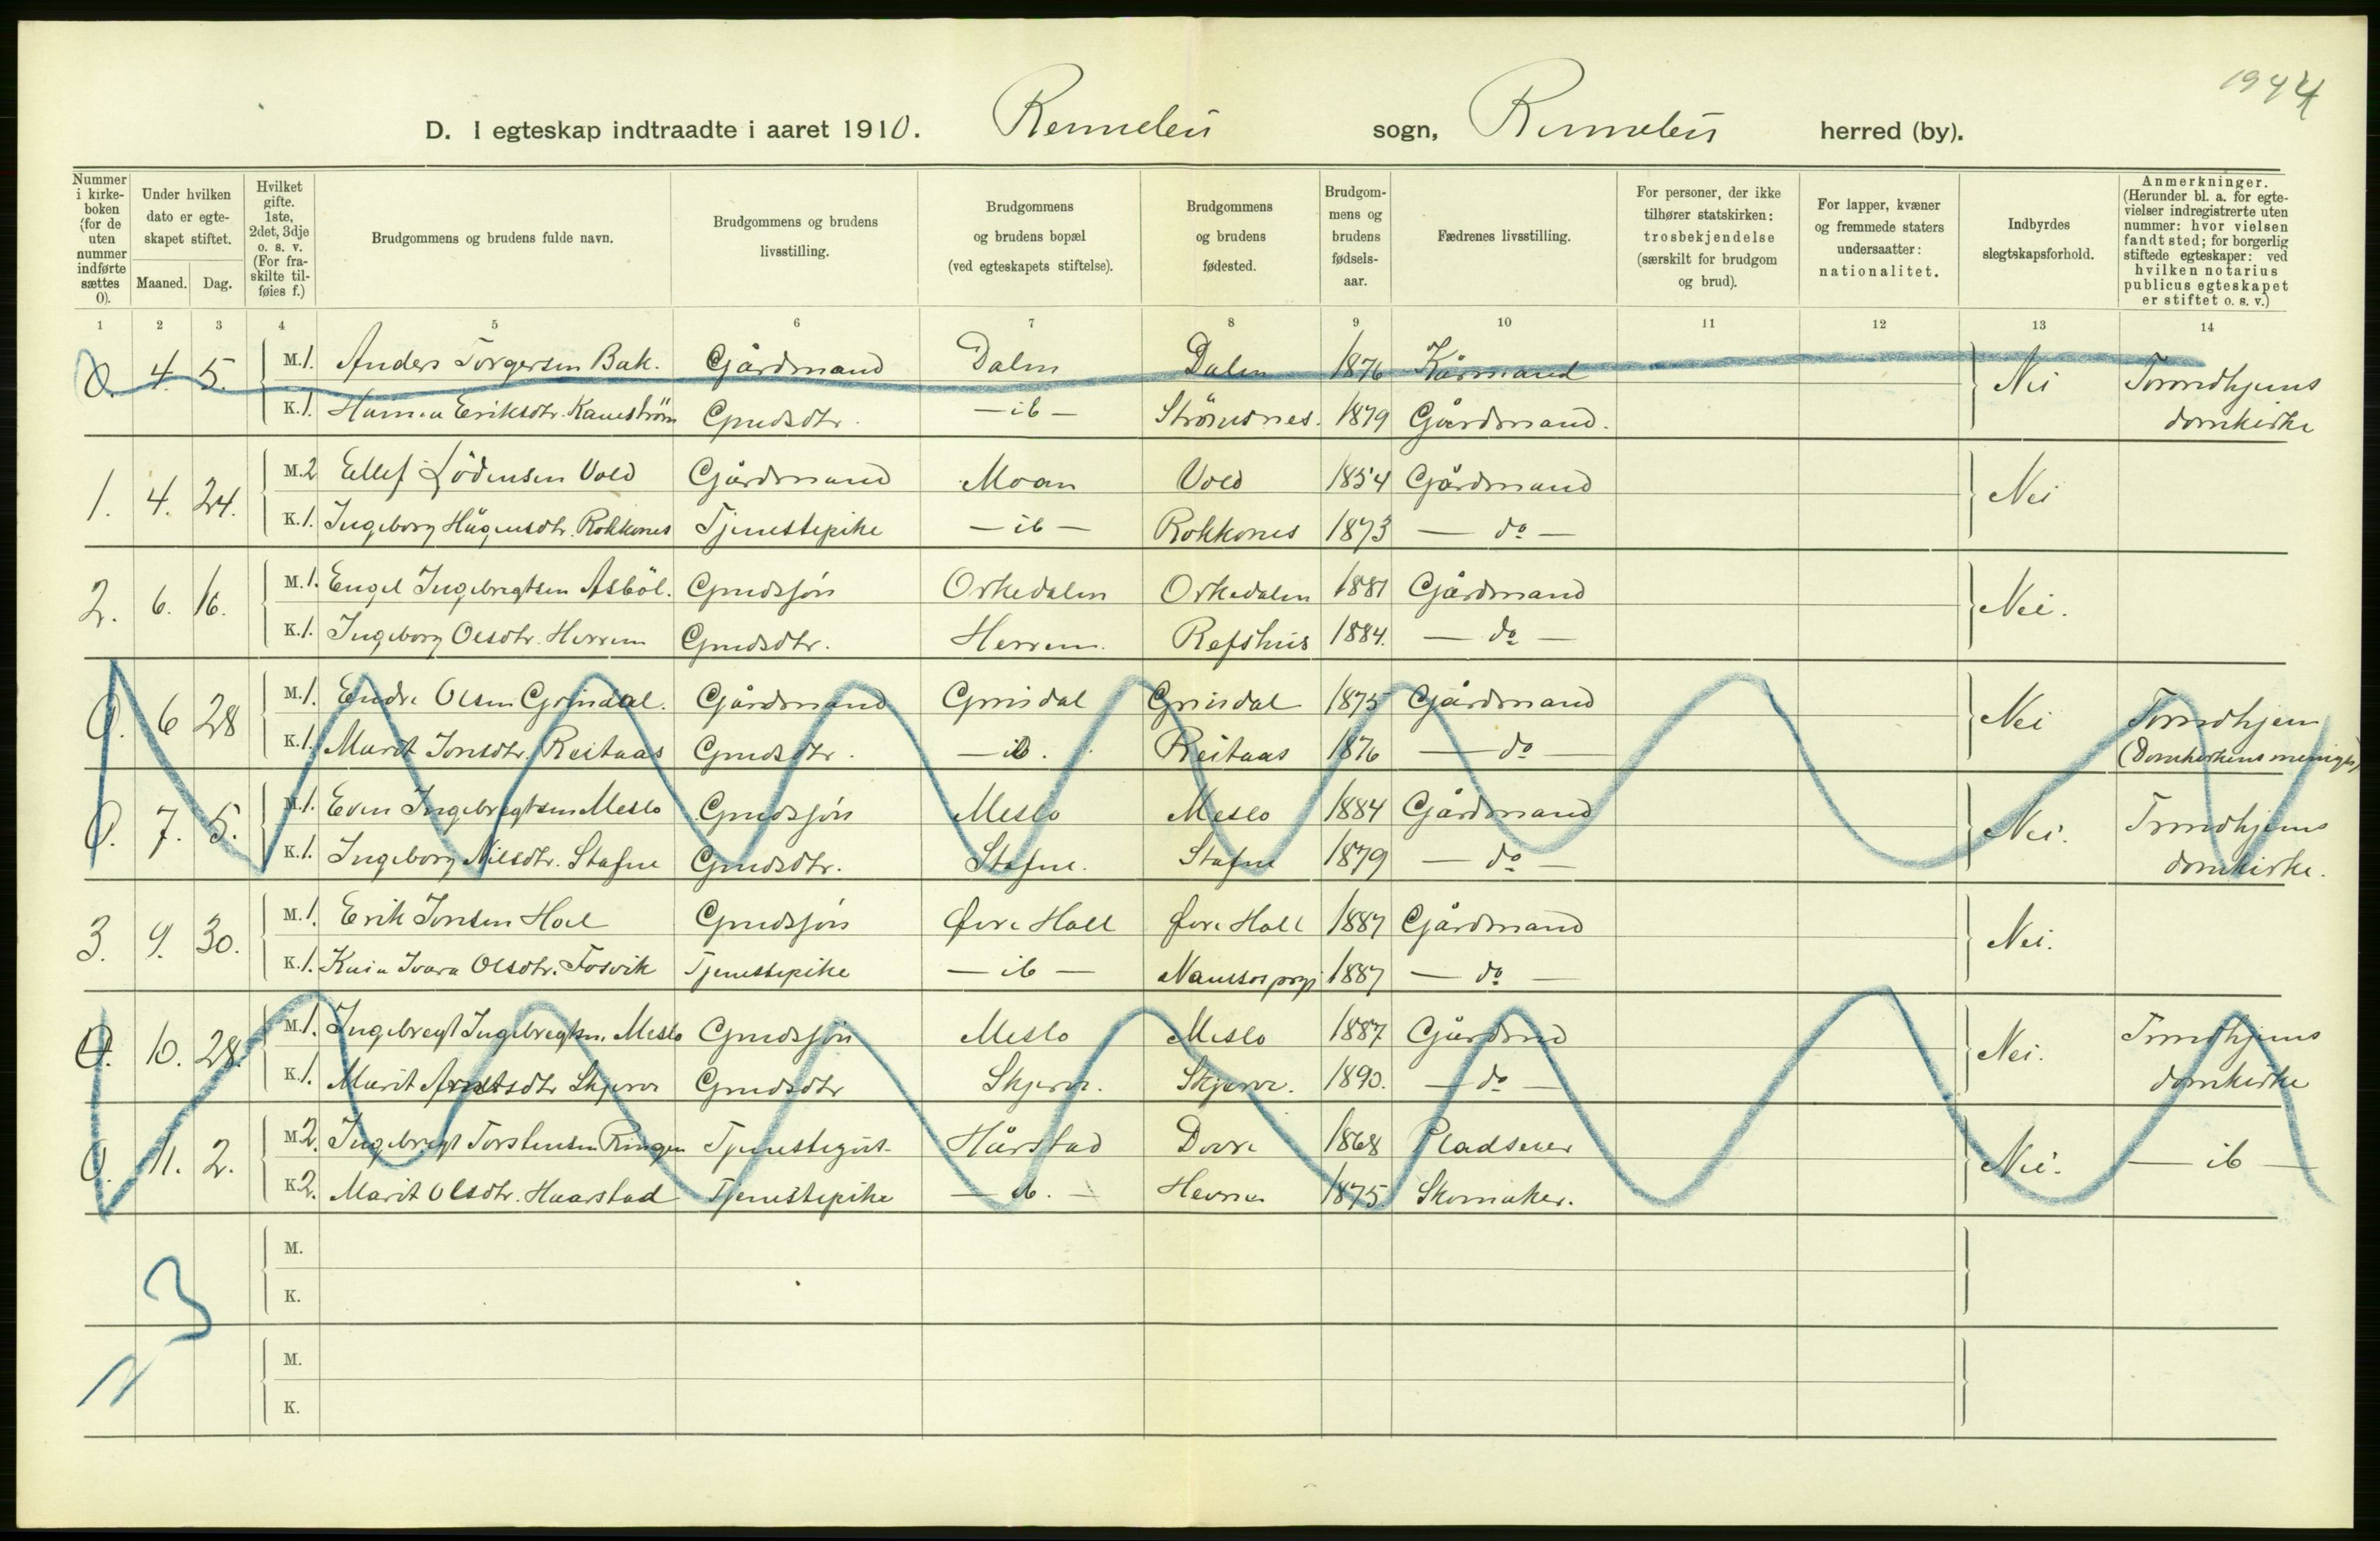 1944
D. I egteskap indtraadte i aaret 1910. Rennebu sogn, Rennebu herred (by).
Nummer i kirkeboken (for de uten nummer indførte sættes 0). Under hvilken dato er egteskapet stiftet. Maaned. Dag. Hvilket gifte. 1ste, 2det, 3dje o. s. v. (For fraskilte tilføies f.) Brudgommens og brudens fulde navn. Brudgommens og brudens livsstilling. Brudgommens og brudens bopæl (ved egteskapets stiftelse). Brudgommens og brudens fødested. Brudgommens og brudens fødselsaar. Fædrenes livsstilling. For personer, der ikke tilhører statskirken: trosbekjendelse (særskilt for brudgom og brud). For lapper, kvæner og fremmede staters undersaatter: nationalitet. Indbyrdes slegtskapsforhold. Anmerkninger. (Herunder bl. a. for egtevielser indregistrerte uten nummer: hvor vielsen fandt sted; for borgerlig stiftede egteskaper: ved hvilken notarius publicus egteskapet er stiftet o. s. v.)
1 2 3 4 5 6 7 8 9 10 11 12 13 14
0. 4. 5. M. 1. Anders Torgersen Bak. Gårdmand Dalen Dalen 1876 Kårmand Nei Trondhjems
K. 1. Eriksdtr. Gmdsdtr. — ib — Strömsnes. 1879 Gårdmand. domkirke
1. 4. 24. M. 2 Ellef Lödensen Vold Gårdmand Moan Vold 1854 Gårdmand Nei
K. 1. Ingeborg Hågensdtr. Rokkones Tjenestepike — ib — Rokkones 1873 — do —
2. 6. 16. M. 1. Engel Ingebregtsen Asböl. Gmdssön Orkedalen Orkedalen 1881 Gårdmand Nei.
K. 1. Ingeborg Olsdtr. Herrem Gmdsdtr. Herrem. Refshus 1884. — do —
0. 6 28 M. 1. Endre Olsen Grindal. Gårdmand Grindal Grindal 1875 Gårdmand Nei Trondhjem
K. 1. Marit Jonsdtr. Reitaas Gmdsdtr. — ib. Reitaas 1876 — do — (Domkirkens menighed)
0. 7. 5. M. 1. Even Ingebregtsen Meslo Gmdssön Meslo Meslo 1884 Gårdmand Nei. Trondhjems
K. 1. Ingeborg Nilsdtr. Stafne Gmdsdtr. Stafne. Stafne 1879 — do — domkirke.
3. 9. 30. M. 1. Erik Jonsen Hol Gmdssön Øvre Holl Øvre Holl 1887 Gårdmand Nei.
K. 1. Olsdtr. Fosvik Tjenestepike — ib — Namsos prgj 1887 — do —
0. 10. 28. M. 1. Ingebregt Ingebregtsn. Meslo Gmdssön Meslo Meslo 1887 Gårdmd Nei. Trondhjems
K. 1. Marit Arntsdtr Skjerve Gmdsdtr Skjerve. Skjerve. 1890. — do — domkirke
0. 11. 2. M. 2. Ingebregt Torstensen Ringen Tjenestegut Hårstad Dovre 1868 Pladseier Nei. — ib —
K. 2. Marit Olsdtr. Haarstad Tjenestepike — ib. — Hevne 1875. Skomaker.
M.
K.
3
M.
K.